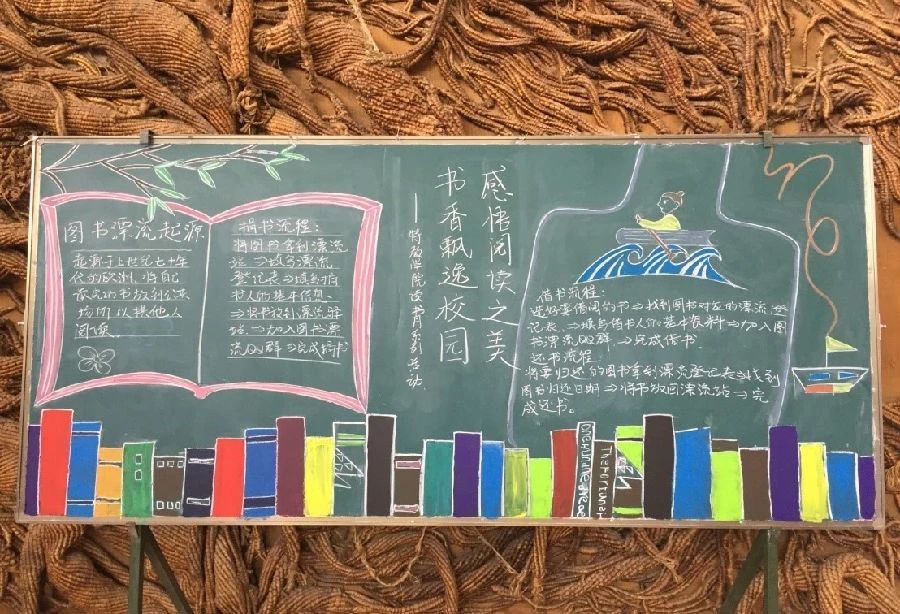 图书漂流起源
起源于上世纪七十年
代的欧洲,将自己
读完的书放到公共
场所以供他人
阅读
捐书流程:
将图书拿到漂流
站⇒填写漂流
登记表⇒填写捐
书人的基本信息
⇒将书放到漂流驿
站⇒加入图书漂
流QQ群⇒完成捐书
感悟阅读之美
书香飘逸校园
——特教学院读书月系列活动
借书流程:
选好要借阅的书⇒找到图书对应的漂流登
记表⇒填写借书人的基本资料⇒加入图
书漂流QQ群⇒完成借书
还书流程
将要归还的图书拿到漂流登记表找到
图书归还日期⇒将书放回漂流站⇒完
成还书。